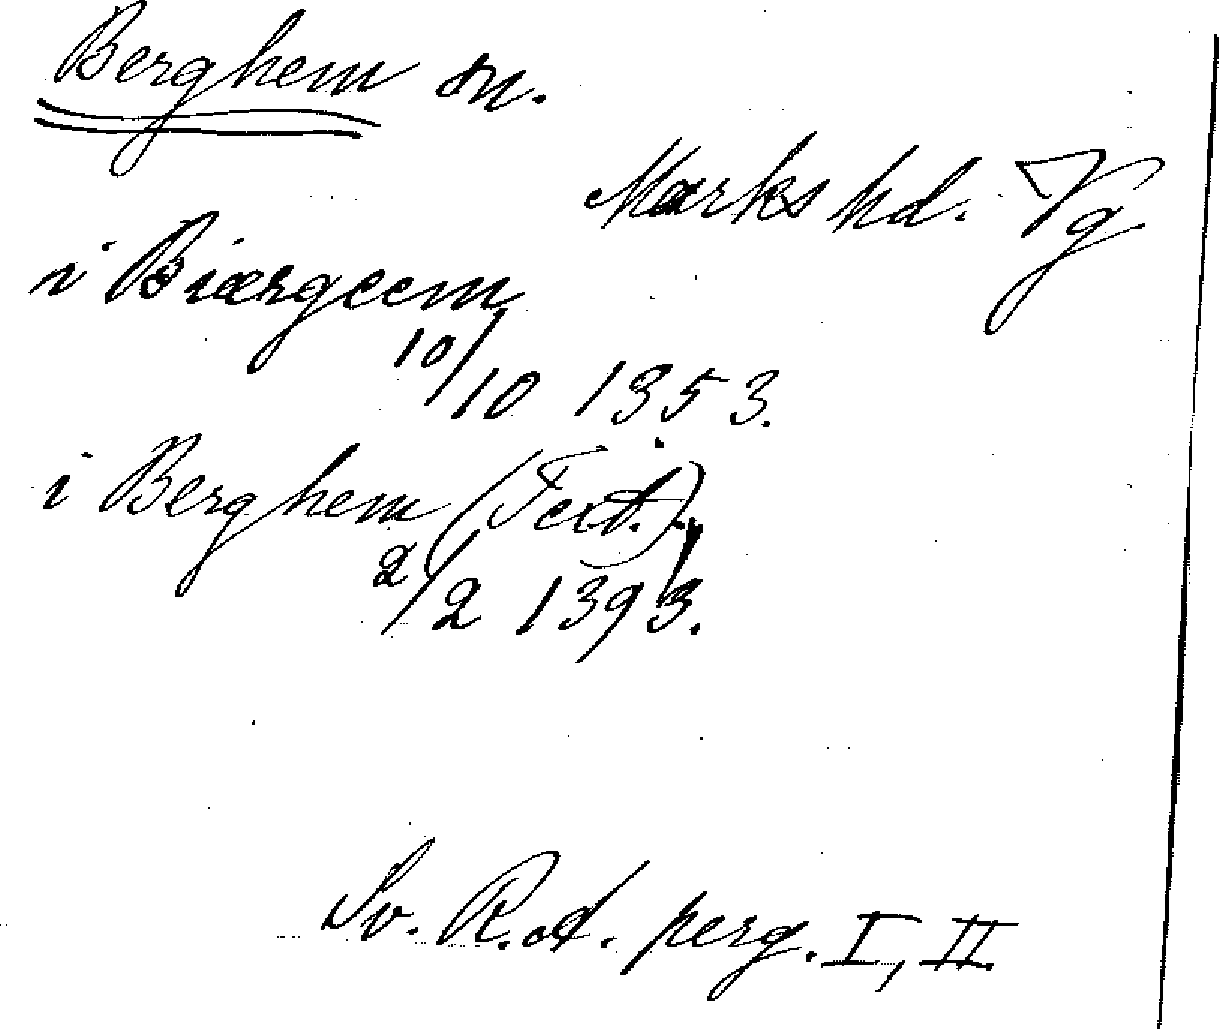 Berghem sn.
Marks hd. Vg
i Biærgeem
10/10 1353.
i Berghem (Text.)
2/2 1393.
Sv. R.A. perg. I, II